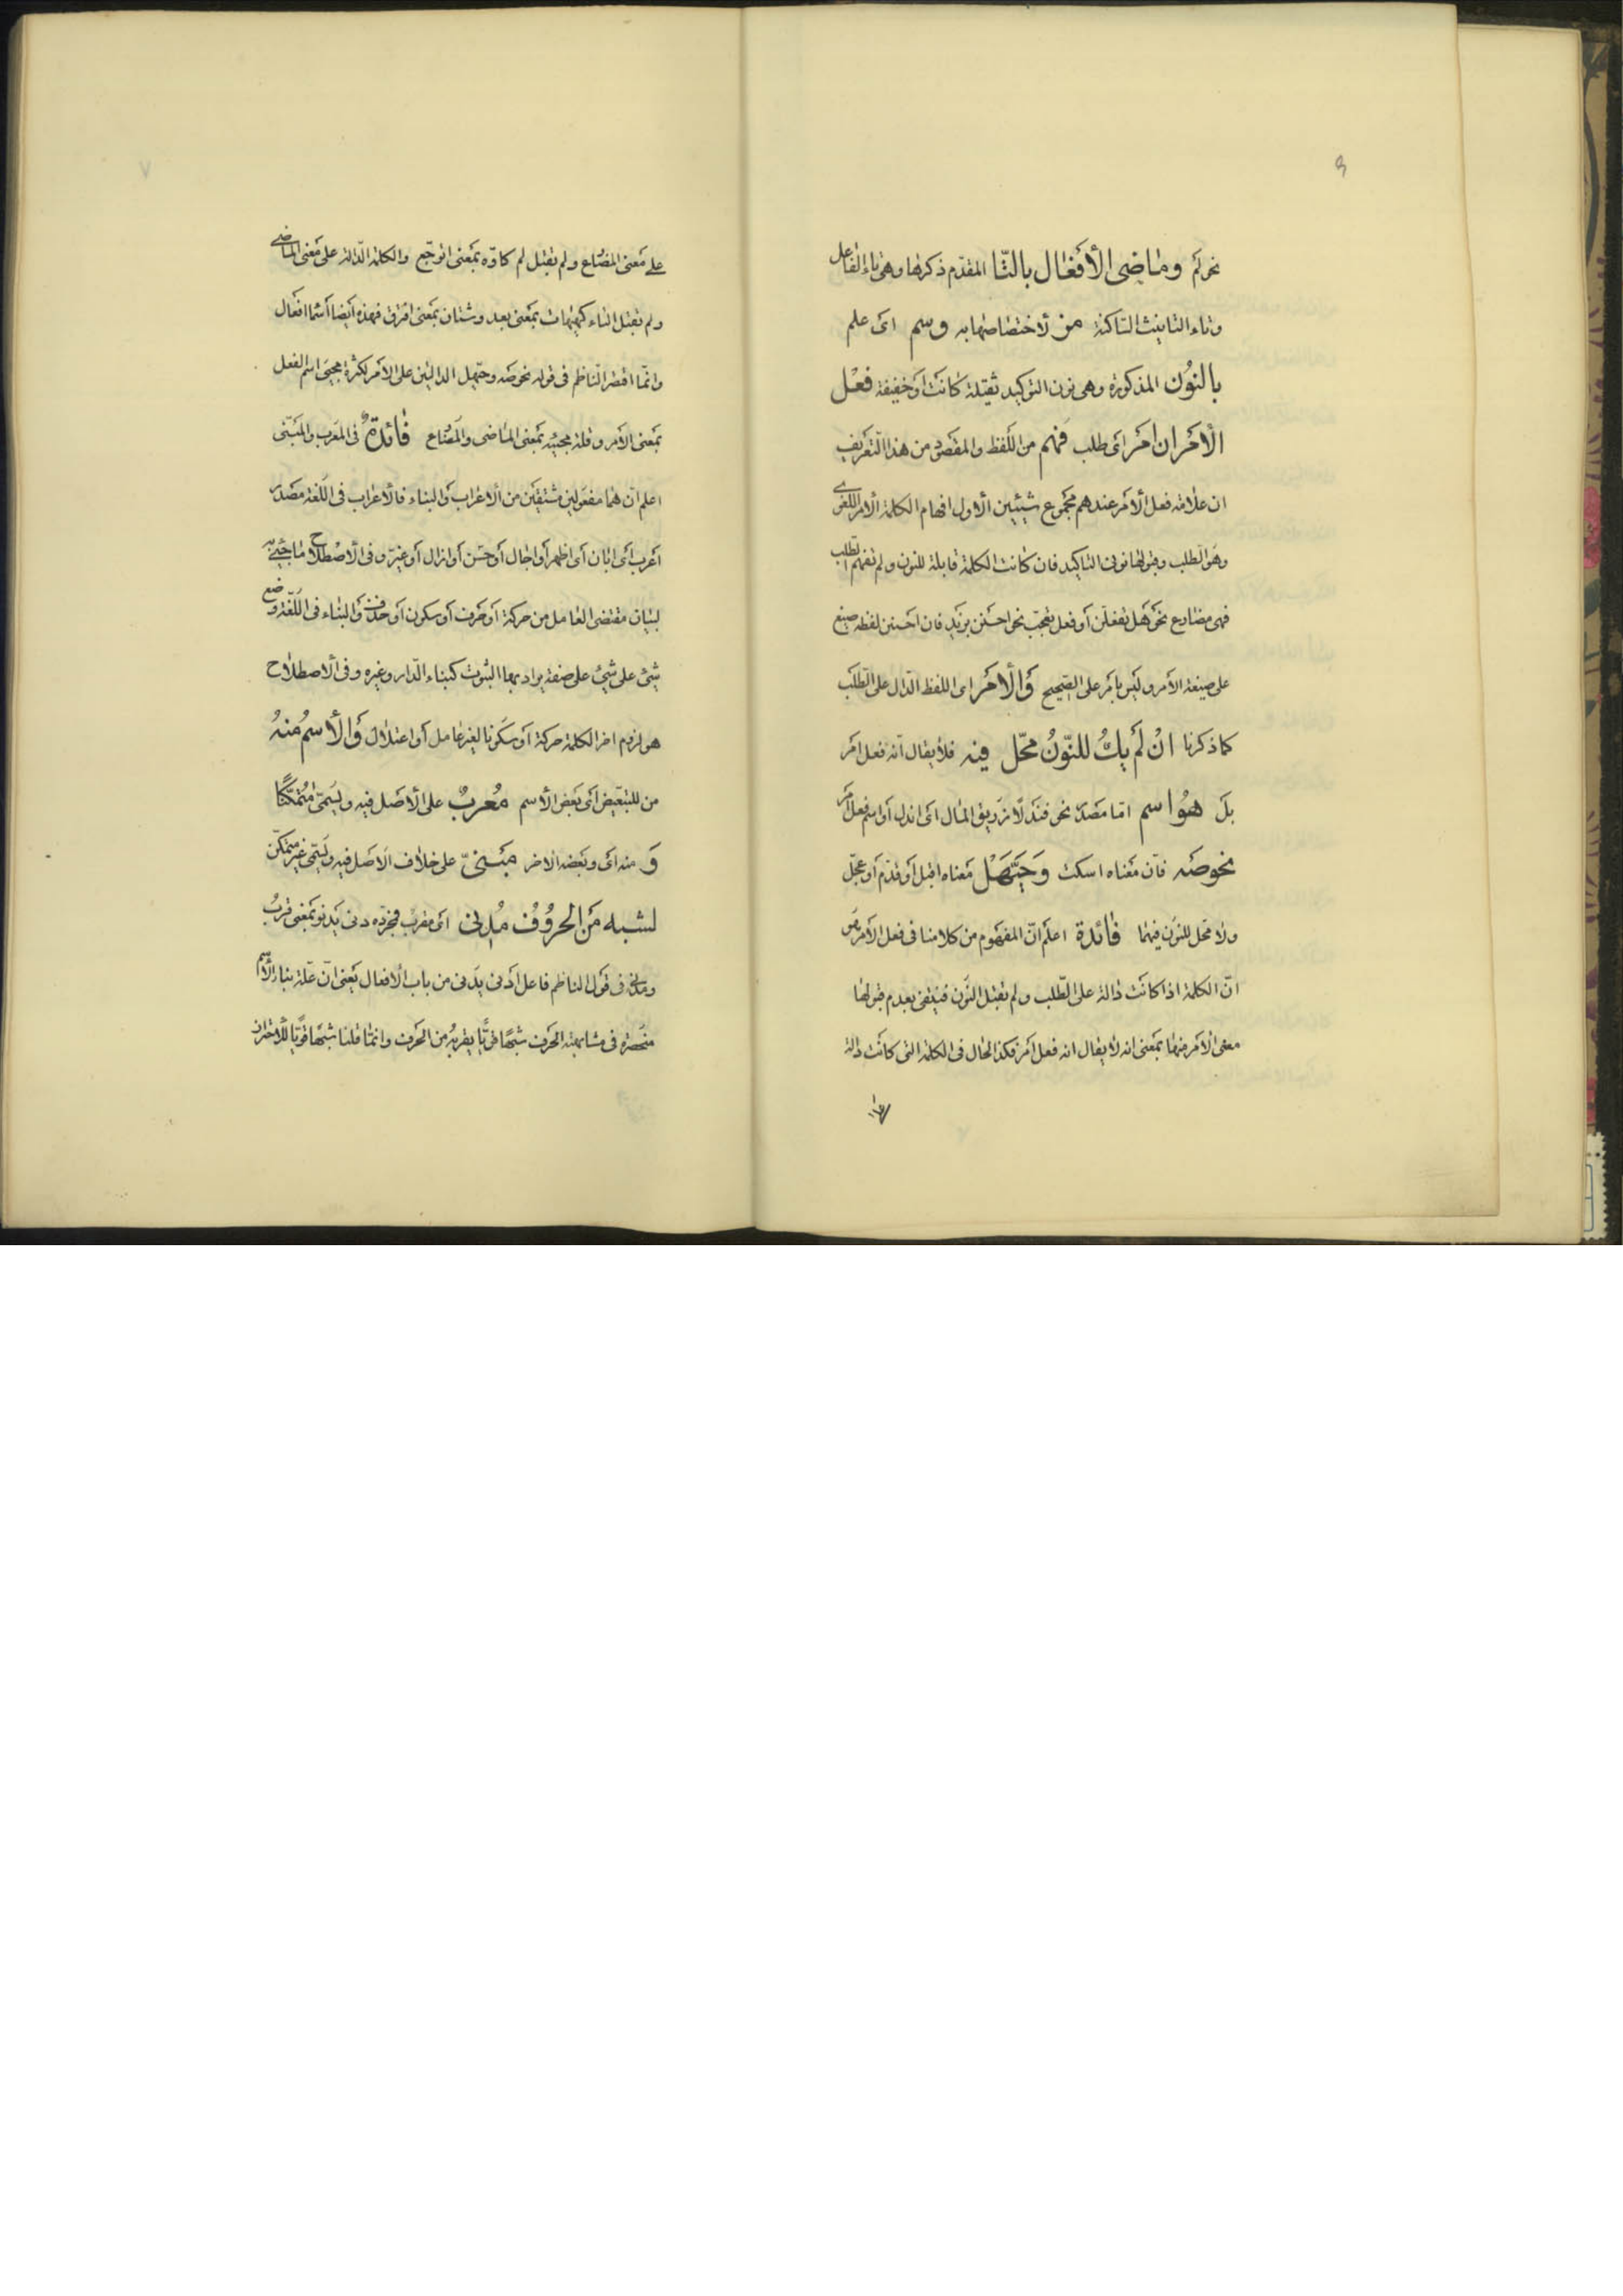 ٩
نحو لم وماضى الأفعال بالتّا المقدّم ذكرها وهى تاء الفاعل
وتاء التانيث السّاكنة من لاختصاصها به وسم اى علم
بالنوُن المذكورة وهى نون التوكيد ثقيلة كانت او خفيفة فعْل
الْامَر ان امَر اى طلب فُهم من اللفظ والمقصود من هذا التّعريف
ان علامة فعل الأمر عندهم مجموع شيئين الأول افهام الكلمة الأمر اللغوى
وهو الطلب وقبولها نون التاكيد فان كانت الكلمة قابلة للنون ولم تفهم الطلب
فهى مضارع نحو هل تفعلنّ أو فعل تعجّب نحو احسن بزيد فان احسن لفظه صيغ
على صيغة الأمر وليس بامر على الصحيح وَالْاَمَر اى اللفظ الدّال على الطلب
كما ذكرنا انْ لَم يكُ للنّوُنُ محّل فيه فلا يقال انّه فعل امر
بل هوُ اسم امّا مصدر نحو فندلا زريق المال اى اندل أو اسم فعل امر
نحو صَه فانّ معناه اسكت وَحَيَّهَلْ معناه اقبل أو قدّم أو عجّل
ولا محل للنون فيهما فائدة اعلم انّ المفهوم من كلامنا فى فعل الأمر
انّ الكلمة اذا كانت دالة على الطّلب ولم تقبل النّون فينتفى بعدم قبولها
معنى الأمر منها بمعنى انه لا يقال انه فعل امر فكذا الحال فى الكلمة التى كانت دالة
٧
على معنى المضارع ولم تقبل لم كاوّه بمعنى اتوجّع والكلمة الدّالة على معنى الماضى
ولم تقبل التاء كهيهات بمعنى بعد وشتان بمعنى افترق فهذه أيضا أسما افعال
وانّما اقتصر النّاظم فى قوله نحو صَه وحيّهل الدالين على الأمر لكثرة مجيئ اسم الفعل
بمعنى الأمر وقلة مجيئه بمعنى الماضى والمضارع فائدةٌ فى المعرب والمبنى
اعلم انّ هما مفعولين مشتقين من الأعراب والبناء فالأعراب فى اللّغة مصدر
أعرب اى ابان أى اظهر أو اجال أو حسّن أو ازال أو غيّر وفى الأصطلاح ما جئ به
لبيان مقتضى العامل من حركة أو حرف أو سكون أو حذف والبناء فى اللغة وضع
شئ على شئ على صفة يراد بها الثبوت كبناء الدّار وغيره وفى الأصطلاح
هو لزوم اخر الكلمة حركة أو سكونا لغير عامل أو اعتلال وَالأسمُ منهُ
من للتبعيض أى بعض الأسم مُعربٌ على الأصل فيه ويسمى متمكنًا
وَ منه أى وبعضه الاخر مَبنىّ على خلاف الأصل فيه ويسمى غير متمكّن
لشبه مَن الحروُف مُدنى اى مقرب فمجرّده دنى يدنو بمعنى قرب
ومدنى فى قول الناظم فاعل ادنى يدنى من باب الأفعال يعنى انّ علّة بناء الأسم
منحصرة فى مشابهته الحرف شبهًا قويًّا يقربه من الحرف وانّما قلنا شبهًا قويًا للأحتراز